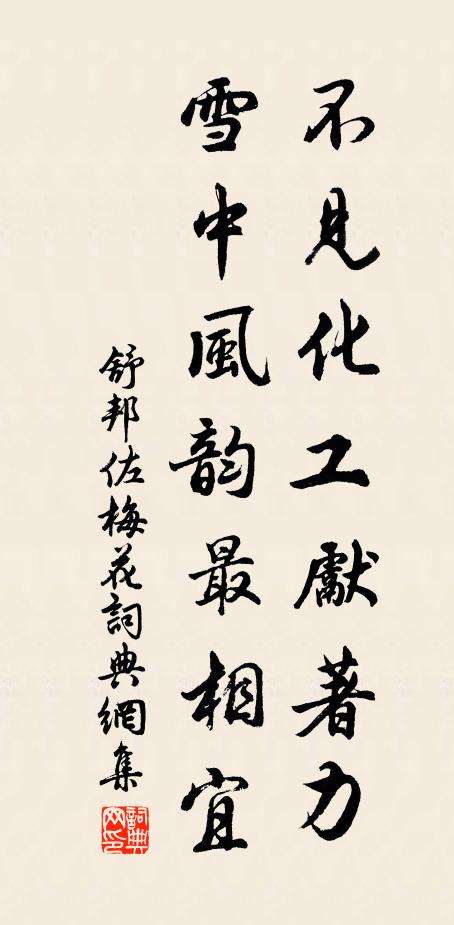 不見化工獻著力
雪中風韵最相宜
舒邦佐梅花詞典網集
詞典网印